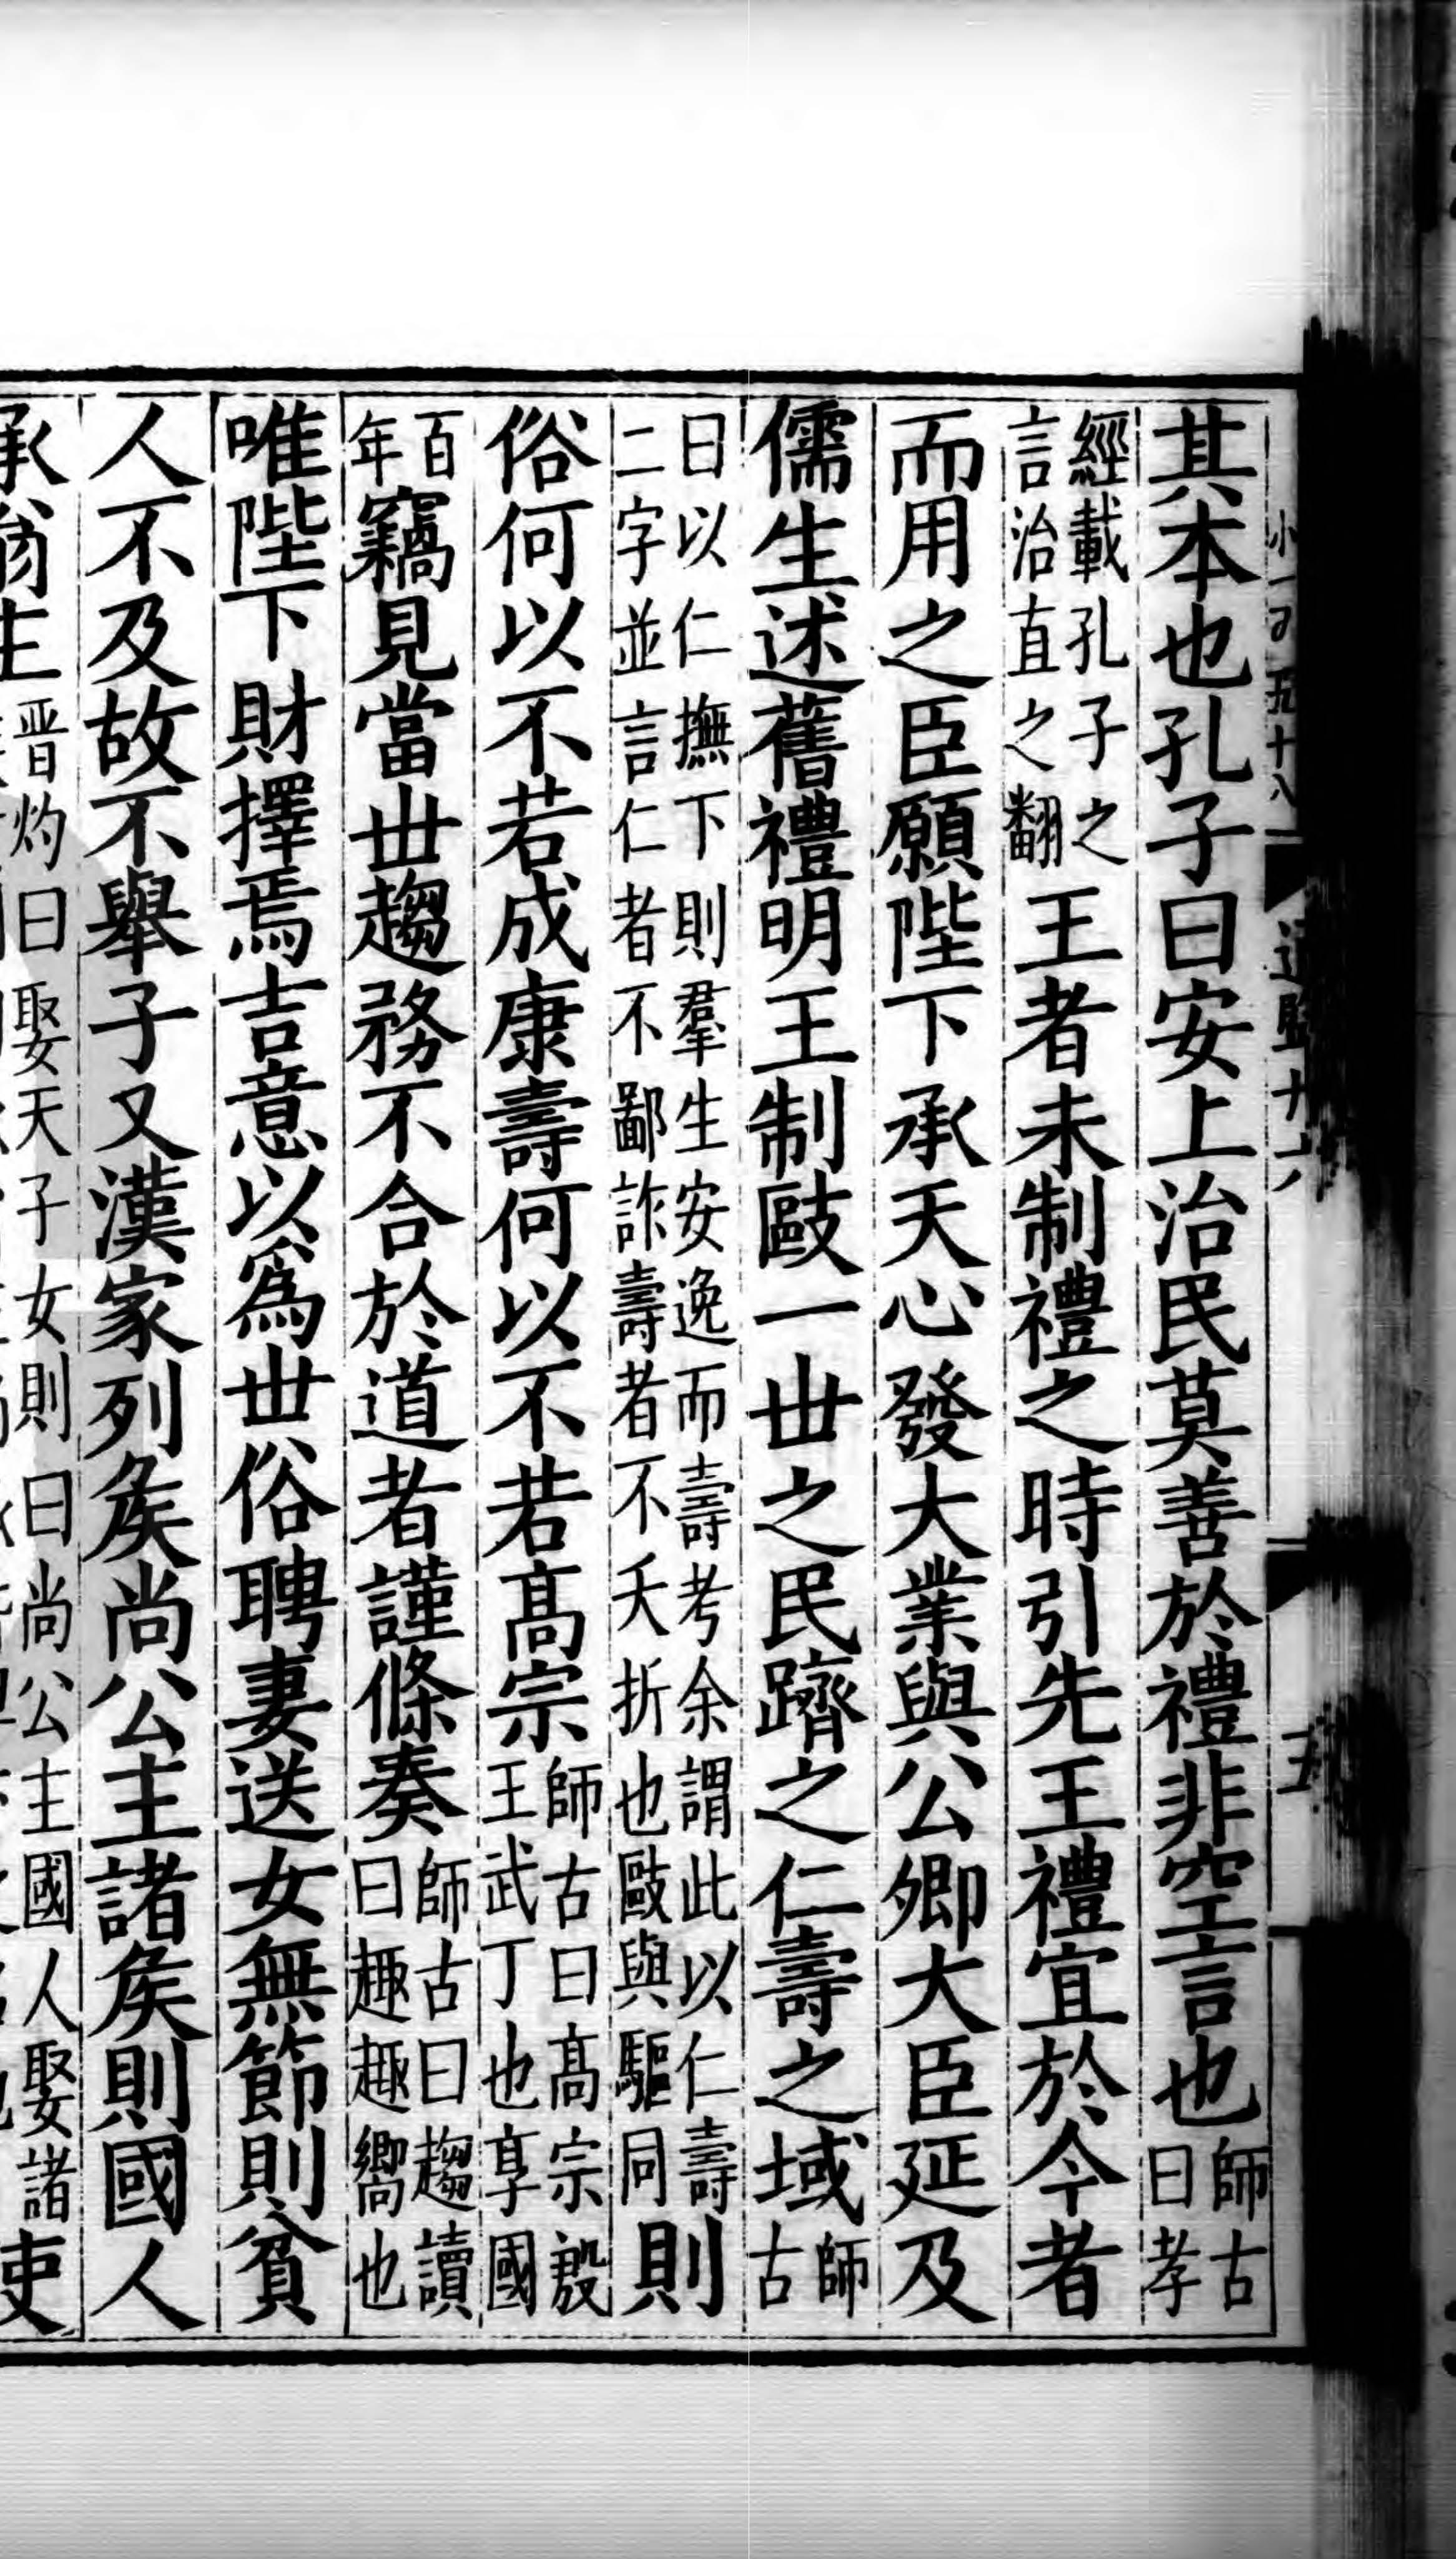 小一百五十八 通鑑 五
其本也孔子曰安上治民莫善於禮非空言也師古曰孝
經載孔子之言治直之翻王者未制禮之時引先王禮宜於今者
而用之臣願陛下承天心發大業與公卿大臣延及
儒生述舊禮明王制敺一世之民躋之仁壽之域師古
曰以仁撫下則羣生安逸而壽考余謂此以仁壽二字並言仁者不鄙詐壽者不夭折也敺與驅同則
俗何以不若成康壽何以不若髙宗師古曰髙宗殷王武丁也享國
百年竊見當丗趨務不合於道者謹條奏師古曰趨讀曰趣趣嚮也
唯陛下財擇焉吉意以爲丗俗聘妻送女無節則貧
人不及故不舉子又漢家列矦尚公主諸矦則國人
承翁主晋灼曰娶天子女則曰尚公主國人娶諸